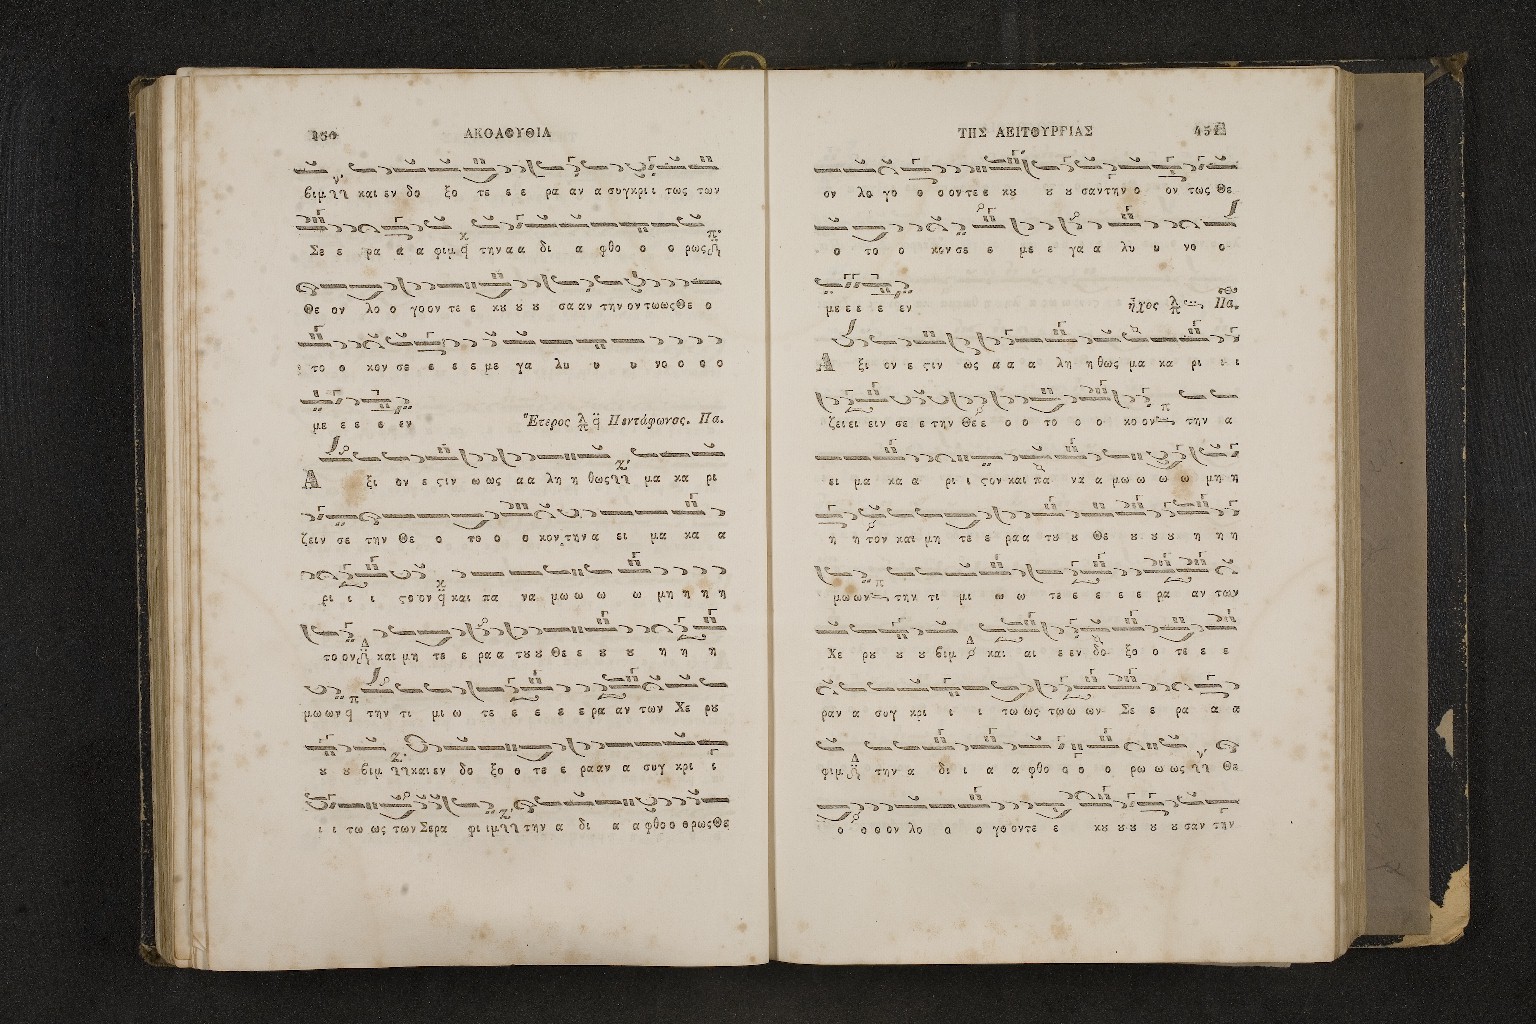 450 ΑΚΟΛΟΥΘΙΑ
βιμ και εν δο ξο τε ε ε ρα αν α συγκρι ι τως των
Σε ε ρα α α φιμ την α α δι α φθο ο ο ρως
Θε ον λο ο γο ον τε ε κυ υ υ σα αν την ον τωως Θε ο
το ο κον σε ε ε ε με γα λυ υ υ νο ο ο ο
με ε ε ε εν Ἕτερος Πεντάφωνος. Πα.
Α ξι ον ε ςιν ω ως α α λη η θως μα κα ρι
ζειν σε την Θε ο το ο ο κον την α ει μα κα α
ρι ι ι το ον και πα να μω ω ω ω μη η η η
το ον και μη τε ε ρα α τυ υ Θε ε υ υ η η η
μω ων την τι μι ω τε ε ε ε ε ρα αν των Χε ρυ
υ υ βιμ και εν δο ξο ο τε ε ε ρα αν α συγ κρι ι
ι ι τω ως των Σε ρα φι ιμ την α δι α α φθο ο ο ρως Θε
ΤΗΣ ΛΕΙΤΟΥΡΓΙΑΣ 451
ον λο γο ο ο ον τε ε κυ υ υ σαν την ο ον τως Θε
ο το ο κον σε ε με ε γα α λυ υ νο ο
με ε ε ε εν ἦχος Πα.
Α ξι ον ε ςιν ως α α α λη η θως μα κα ρι ι ι
ζει ει ειν σε ε την Θε ε ο ο το ο ο κο ον την α
ει μα κα α ρι ι ςον και πα να α μω ω ω ω μη η
η η τον και μη τε ε ρα α τυ υ Θε υ υ υ η η η
μω ων την τι μι ω ω τε ε ε ε ε ρα αν των
Χε ρυ υ υ βιμ και αι ε εν δο ξο ο τε ε ε
ραν α συγ κρι ι ι τω ως τωωων Σε ε ρα α α
φιμ την α δι ι α α φθο ο ο ο ρω ω ως Θε
ο ο ο ον λο ο ο γο ον τε ε κυ υ υ υ υ σαν την